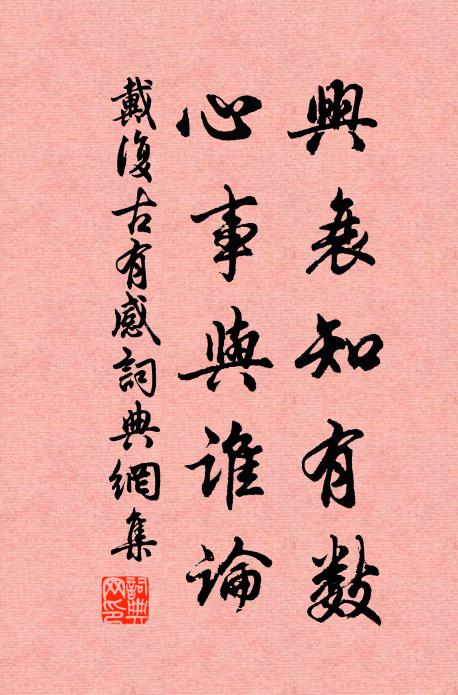 興衰知有數
心事與誰論
戴復古有感詞典網集
詞典網印